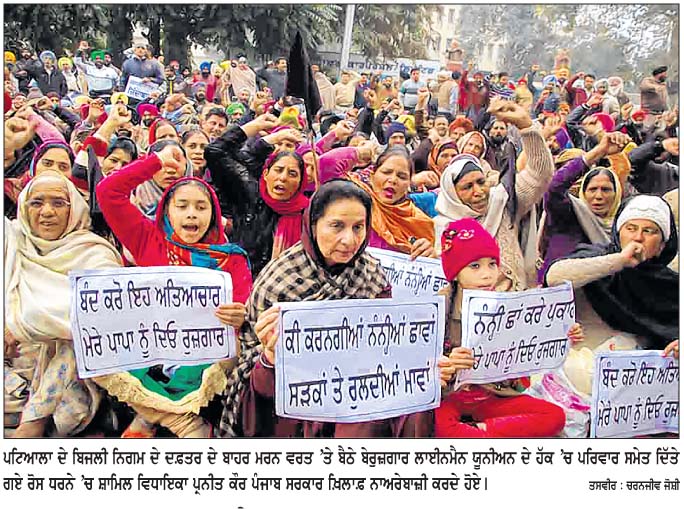 ਬੰਦ ਕਰੋ ਇਹ ਅਤਿਆਚਾਰ
ਮੇਰੇ ਪਾਪਾ ਨੂੰ ਦਿਓ ਰੁਜ਼ਗਾਰ
ਕੀ ਕਰਨਗੀਆਂ ਨੰਨ੍ਹੀਆਂ ਛਾਵਾਂ
ਸੜਕਾਂ ਤੇ ਰੁਲਦੀਆਂ ਮਾਵਾਂ
ਨੰਨ੍ਹੀਆਂ ਛਾਂ
ਨੰਨੀ ਛਾਂ ਕਰੇ ਪੁਕਾਰ
ਮੇਰੇ ਪਾਪਾ ਨੂੰ ਦਿਓ ਰੁਜ਼ਗਾਰ
ਬੰਦ ਕਰੋ ਇਹ ਅ
ਮੇਰੇ ਪਾਪਾ ਨੂੰ ਦਿਓ ਰੁ
ਪਟਿਆਲਾ ਦੇ ਬਿਜਲੀ ਨਿਗਮ ਦੇ ਦਫ਼ਤਰ ਦੇ ਬਾਹਰ ਮਰਨ ਵਰਤ ’ਤੇ ਬੈਠੇ ਬੇਰੁਜ਼ਗਾਰ ਲਾਈਨਮੈਨ ਯੂਨੀਅਨ ਦੇ ਹੱਕ ’ਚ ਪਰਿਵਾਰ ਸਮੇਤ ਦਿੱਤੇ
ਗਏ ਰੋਸ ਧਰਨੇ ’ਚ ਸ਼ਾਮਿਲ ਵਿਧਾਇਕਾ ਪ੍ਰਨੀਤ ਕੌਰ ਪੰਜਾਬ ਸਰਕਾਰ ਖ਼ਿਲਾਫ਼ ਨਾਅਰੇਬਾਜ਼ੀ ਕਰਦੇ ਹੋਏ। ਤਸਵੀਰ : ਚਰਨਜੀਵ ਜੋਸ਼ੀ